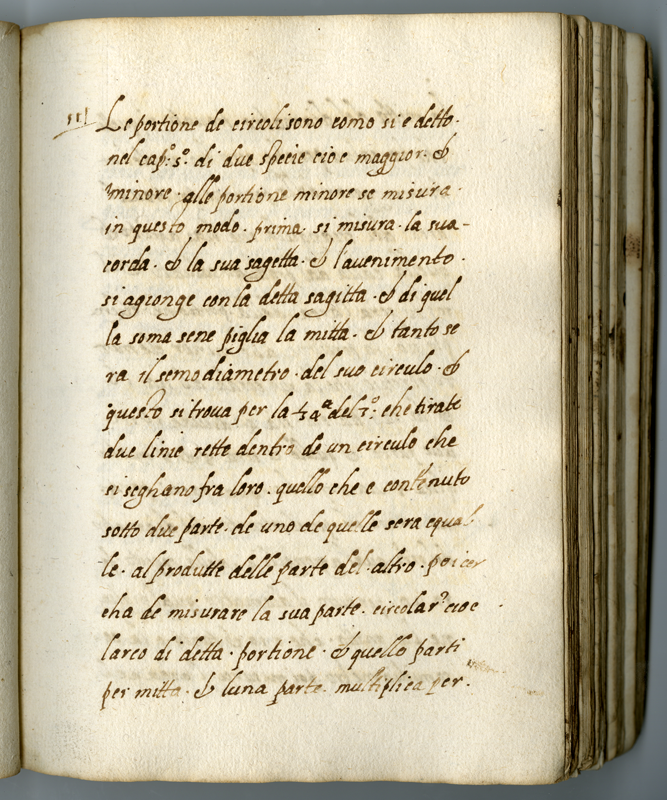 Le portione de circoli sono como si e detto.
nel cap.º 5.º di due specie cioe maggior. &
minore. alle portione minore se misura.
in questo modo. prima. si misura. la sua-
corda. & la sua sagetta. & l'auenimento.
si agionge con la detta sagitta. & di quel
la soma sene piglia la mitta. & tanto se
ra il semodiametro. del suo circulo. &
questo si troua per la del 3.º: che tirate
due linie rette dentro de un circulo che
si seghano fra loro. quello che e contenuto
sotto due parte. de uno de quelle sera equal
le. al produtte delle parte del. altro. poi cer
cha de misurare la sua parte. circolar. cioe
larco di detta. portione. & quello parti
per mitta. & luna parte. multiplica per.